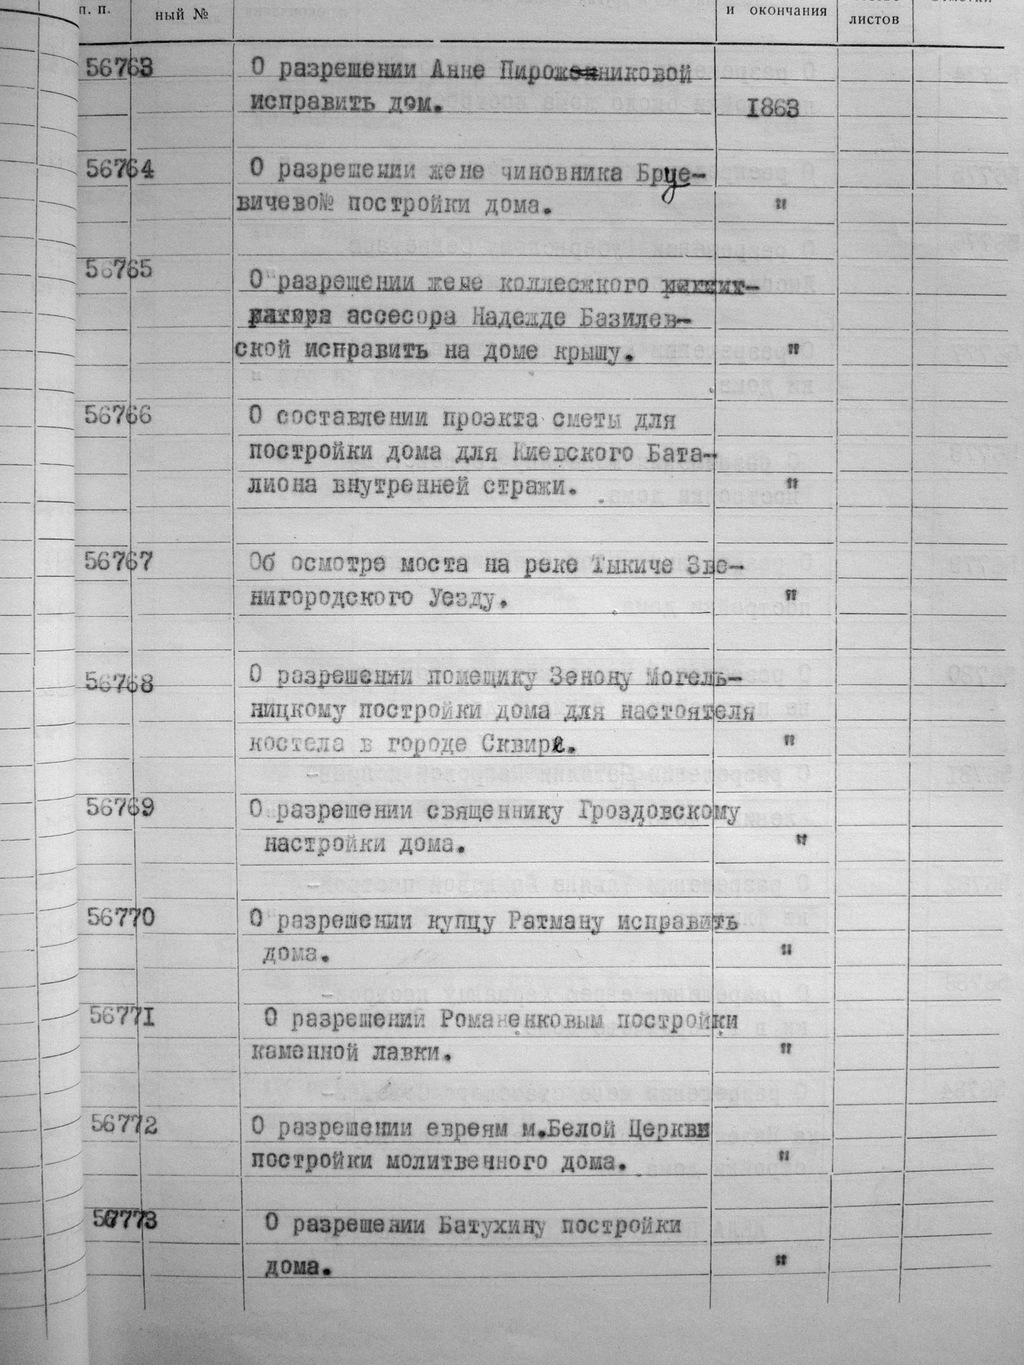 п. п.
ный №
и окончания
листов
56763
О разрешении Анне Пирожниковой
исправить дом.
1863
56764
О разрешении жене чиновника Бруе-
вичево№ постройки дома.
"
56765
О разрешении жене коллежкого
ассесора Надежде Базилев-
ской исправить на доме крышу.
"
56766
О составлении проэкта сметы для
постройки дома для Киевского Бата-
лиона внутренней стражи.
"
56767
Об осмотре моста на реке Тыкиче Зве-
нигородского Уезду.
"
56768
О разрешении помещику Зенону Могель-
ницкому постройки дома для настоятеля
костела в городе Сквире.
"
56769
О разрешении священнику Гроздовскому
настройки дома.
"
56770
О разрешении купцу Ратману исправить
дома.
"
56771
О разрешении Романенковым постройки
каменной лавки.
"
56772
О разрешении евреям м.Белой Церкви
постройки молитвенного дома.
"
56773
О разрешении Батухину постройки
дома.
"